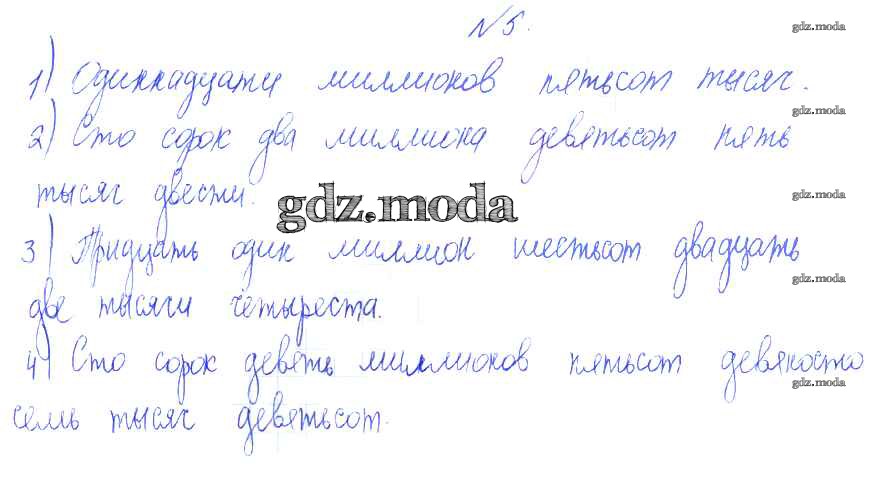 №5.
gdz.moda
1) Одиннадцати миллионов пятьсот тысяч.
gdz.moda
2) Сто сорок два миллиона девятьсот пять
тысяч двести.
gdz.moda
gdz.moda
3) Тридцать один миллион шестьсот двадцать
gdz.moda
две тысячи четыреста.
4) Сто сорок девять миллионов пятьсот девяносто
gdz.moda
семь тысяч девятьсот.